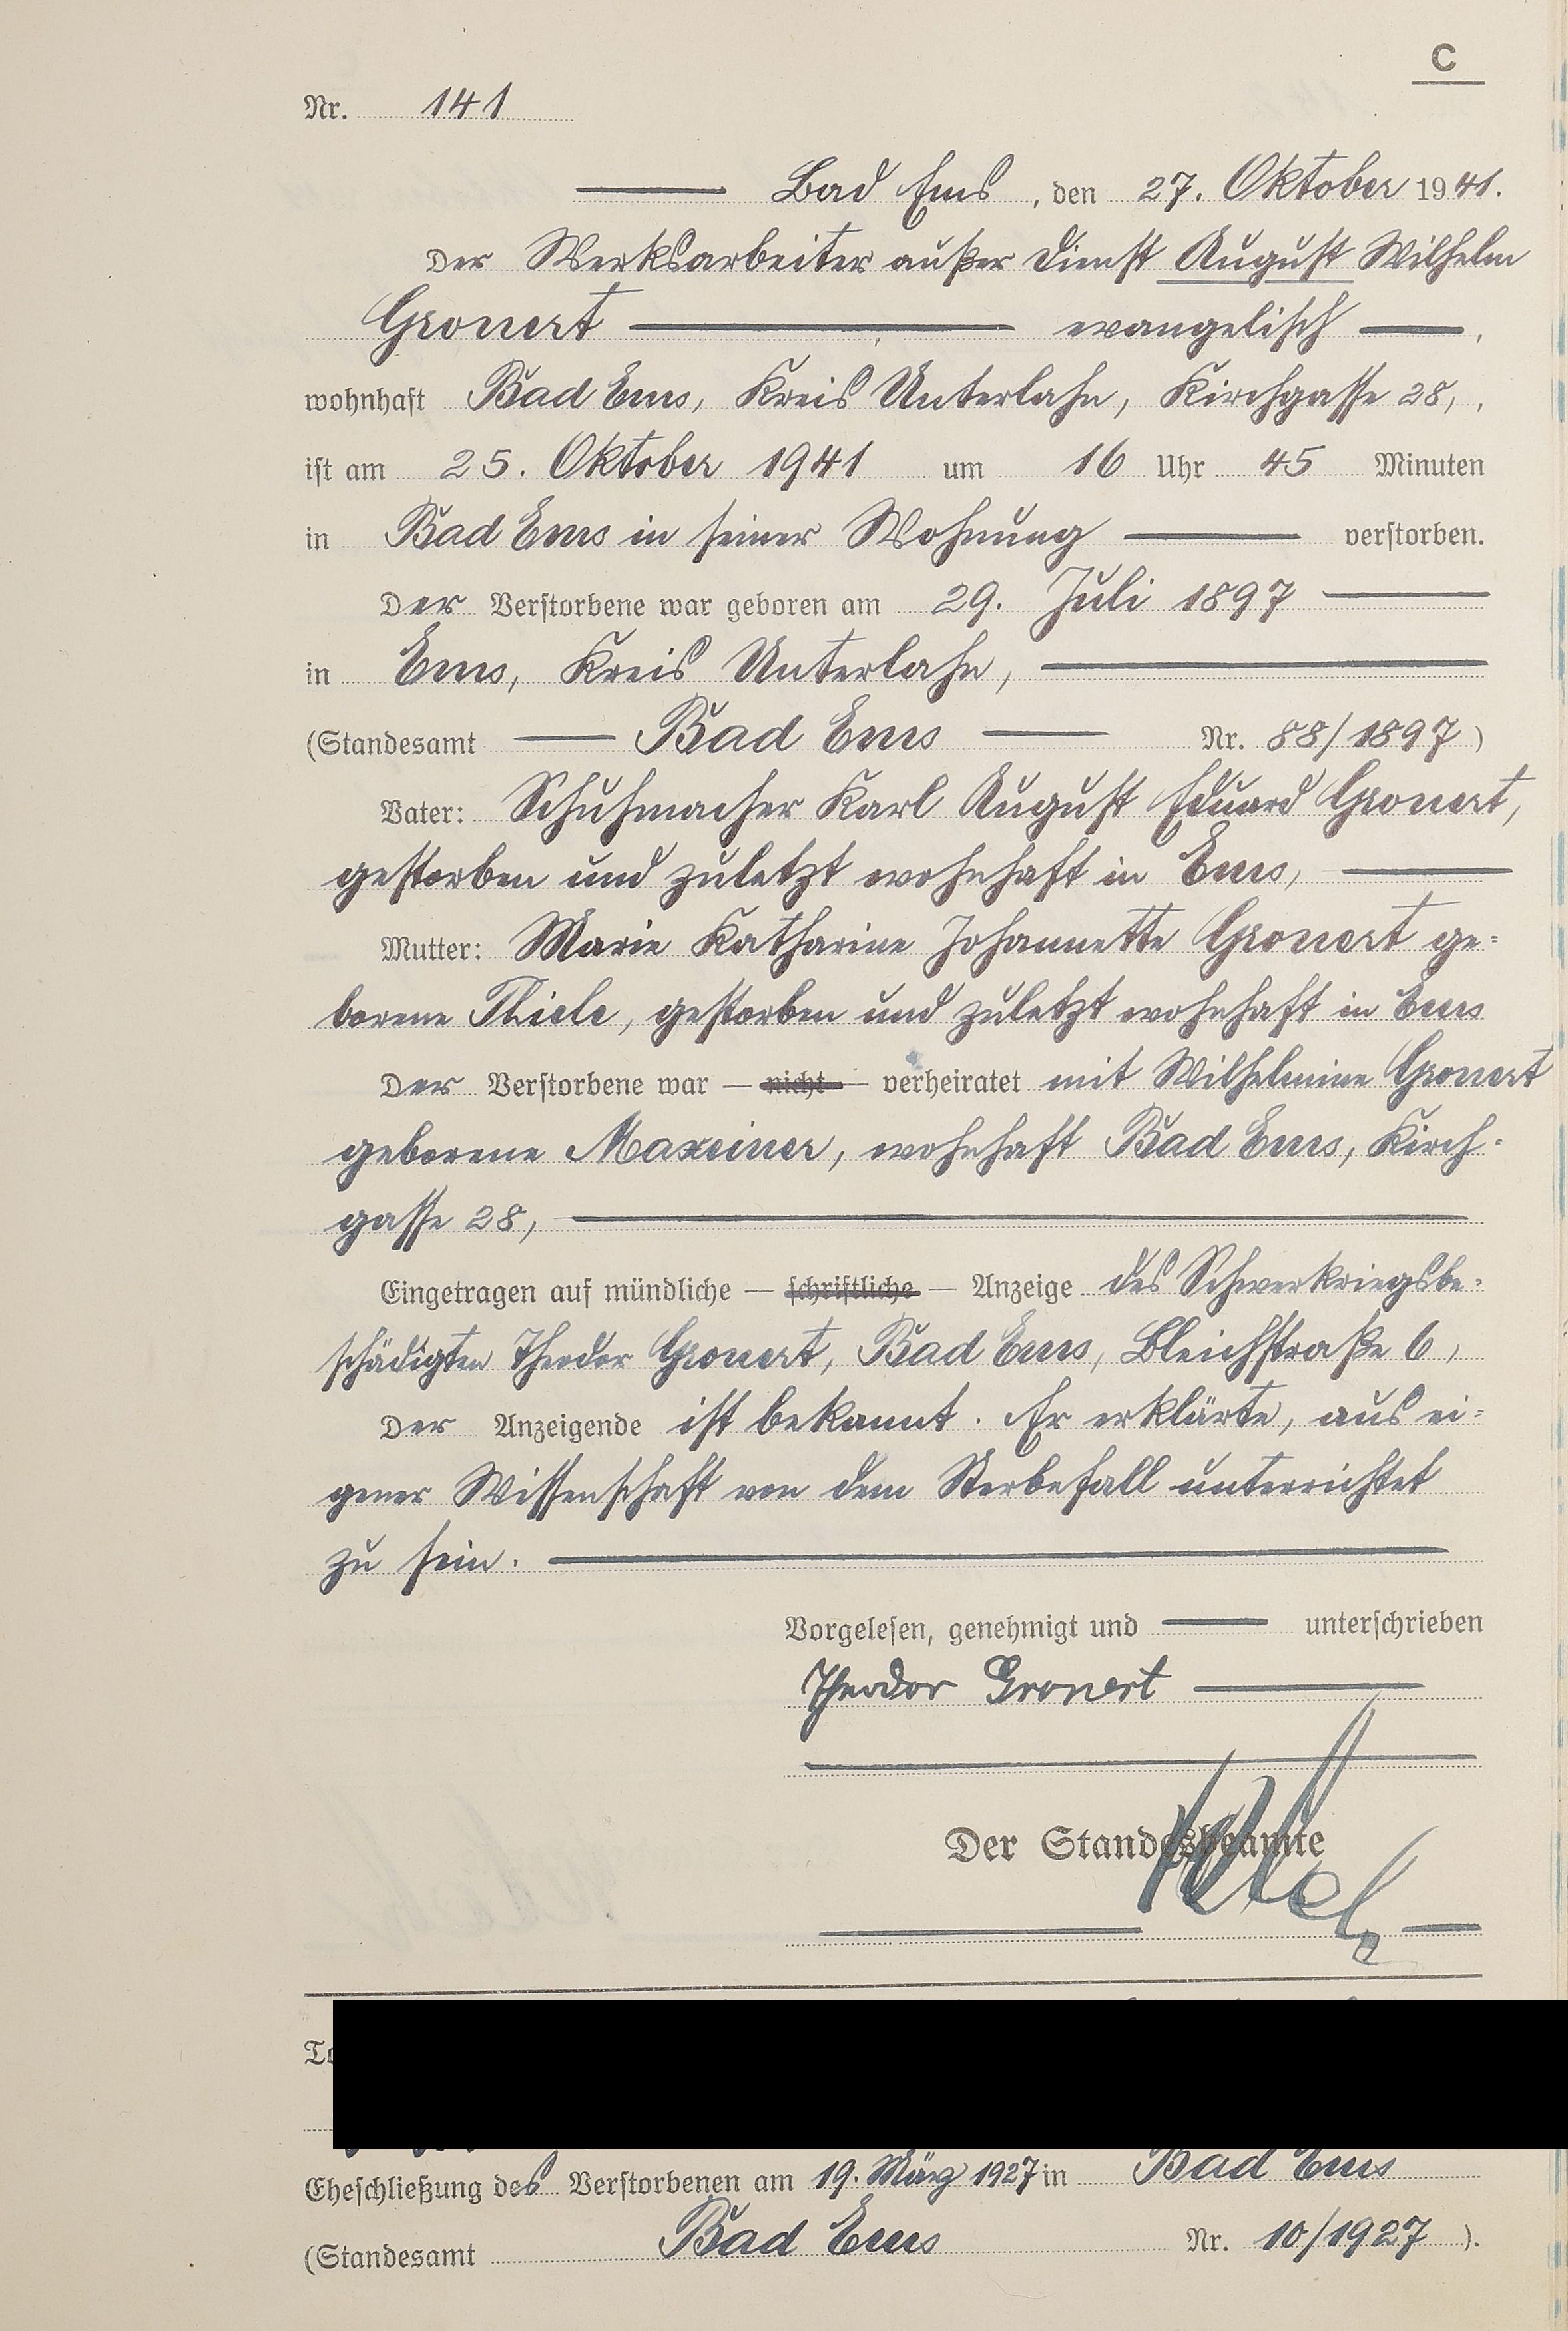 C
Nr. 141
Bad Ems, den 27. Oktober 1941.
Der Werksarbeiter außer Dienst August Wilhelm
Gronert evangelisch,
wohnhaft Bad Ems, Kreis Unterlahn, Kirchgasse 28,,
ist am 25. Oktober 1941 um 16 Uhr 45 Minuten
in Bad Ems in seiner Wohnung verstorben.
Der Verstorbene war geboren am 29. Juli 1897
in Ems, Kreis Unterlahn,
(Standesamt Bad Ems Nr. 88/1897)
Vater: Schuhmacher Karl August Eduard Gronert,
gestorben und zuletzt wohnhaft in Ems,
Mutter: Marie Katharine Johannette Gronert ge=
borene Thiele, gestorben und zuletzt wohnhaft in Ems
Der Verstorbene war — nicht — verheiratet mit Wilhelmine Gronert
geborene Maxeiner, wohnhaft Bad Ems, Kirch-
gasse 28,
Eingetragen auf mündliche — schriftliche — Anzeige des Schwerkriegsbe=
schädigten Theodor Gronert, Bad Ems, Bleichstraße 6,
Der Anzeigende ist bekannt. Er erklärte, aus ei=
gener Wissenschaft von dem Sterbefall unterrichtet
zu sein.
Vorgelesen, genehmigt und unterschrieben
Theodor Gronert
Der Standesbeamte
Eheschließung des Verstorbenen am 19. März 1927 in Bad Ems
(Standesamt Bad Ems Nr. 10/1927).